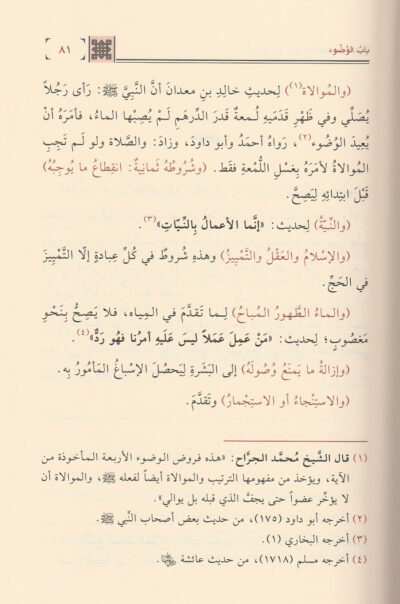 بَابُ الوُضُوء
٨١
(والمُوالاة)(١) لِحديثِ خالِدِ بنِ معدانَ أنَّ النَّبِيَّ ﷺ: رَأى رَجُلاً
يُصَلِّي وفي ظَهْرِ قَدَمِهِ لُمعةٌ قَدرَ الدِّرهَمِ لَمْ يُصِبْها الماءُ، فأمَرَهُ أنْ
يُعِيدَ الوُضُوء(٢)، رَواهُ أحمَدُ وأبو داودَ، وزادَ: والصَّلاة ولو لَم تَجِبِ
المُوالاةُ لأمَرَهُ بِغَسْلِ اللُّمْعةِ فقَط. (وشُرُوطُهُ ثَمانِيةٌ: انقِطاعُ ما يُوجِبُهُ)
قَبْلَ ابتِدائِهِ لِيَصِحَّ.
(والنِّيّةُ) لِحديث: «إنَّما الأعمالُ بِالنِّيّاتِ»(٣).
(والإسْلامُ والعَقْلُ والتَّمْيِيزُ) وهذهِ شُروطٌ في كُلِّ عِبادةٍ إلّا التَّمْيِيزَ
في الحَجِّ.
(والماءُ الطَّهورُ المُباحُ) لِما تَقدَّمَ في المِياه، فلا يَصِحُّ بِنَحْوِ
مَغصُوبٍ؛ لِحديث: «مَنْ عَمِلَ عَمَلاً ليسَ عَلَيهِ أمرُنا فهُو رَدٌّ»(٤).
(وإزالةُ ما يَمنَعُ وُصُولَهُ) إلى البَشَرةِ لِيَحصُلَ الإسْباغُ المَأمُورُ بِه.
(والاستِنْجاءُ أو الاستِجْمارُ) وتَقدَّمَ.
(١) قال الشَّيخ مُحمَّد الجرَّاح: «هذه فروض الوضوء الأربعة المأخوذة من
الآية، ويؤخذ من مفهومها الترتيب والموالاة أيضاً لفعله ﷺ، والموالاة أن
لا يؤخِّر عضواً حتى يجفَّ الذي قبله بل يوالي».
(٢) أخرجه أبو داود (١٧٥)، من حديث بعض أصحاب النَّبي ﷺ.
(٣) أخرجه البخاري (١).
(٤) أخرجه مسلم (١٧١٨)، من حديث عائشة رضي الله عنها.